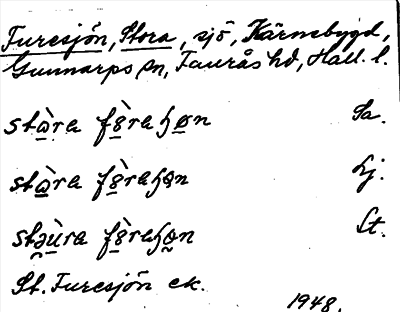 Furesjön, Stora, sjö, Kärnebygd,
Gunnarps sn, Faurås hd, Hall. l.
stòra fòrehøn Sa.
stòra fòrehøn Lj.
stəùra fòrehøn St.
St. Furesjön ek.
1948.